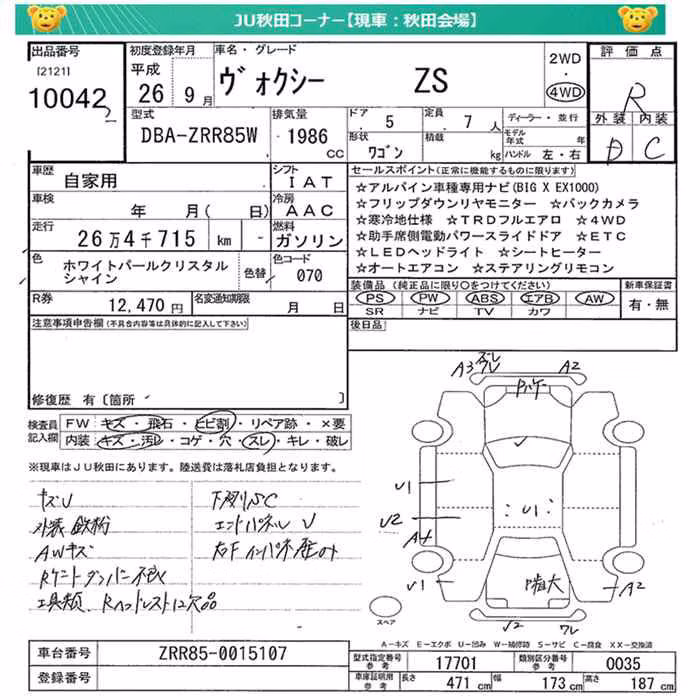 JU秋田コーナー【現車：秋田会場】
出品番号
[2121]
10042
2
初度登録年月
平成
26 9月
車名・グレード
ヴォクシー ZS
2WD
・
4WD
評価点
R
型式
DBA-ZRR85W
排気量
1986
CC
ドア
5
定員
7人
形状
ワゴン
積載
kg
ディーラー・並行
モデル年式 年
ハンドル 左・右
外装 内装
D C
車歴
自家用
シフト
IAT
車検
年 月( 日)
冷房
AAC
走行
26万4千715 km
燃料
ガソリン
色
ホワイトパールクリスタル
シャイン
色替
カラーコード
070
R券
12,470円
名変通知期限
月 日
セールスポイント(正常に機能するものに限ります)
☆アルパイン車種専用ナビ(BIG X EX1000)
☆フリップダウンリヤモニター ☆バックカメラ
☆寒冷地仕様 ☆TRDフルエアロ ☆4WD
☆助手席側電動パワースライドドア ☆ETC
☆LEDヘッドライト ☆シートヒーター
☆オートエアコン ☆ステアリングリモコン
装備品 (純正品に限り○をつけてください)
PS PW ABS エアB AW
SR ナビ TV カワ
新車保証書
有・無
注意事項申告欄(不具合内容等は具体的に記入して下さい)
後日品
修復歴 有〔箇所 〕
検査員
記入欄
FW キズ・飛石・ヒビ割・リペア跡・×要
内装 キズ・汚レ・コゲ・穴・スレ・キレ・破レ
※現車はJU秋田にあります。陸送費は落札店負担となります。
キズU
下廻りSC
外装 鉄粉
エンドパネル U
AWキズ
右Fインパネ
Rゲートダンパー不良
工具類、Rヘッドレスト1ケ欠品
A3
ズレ
ワレ
A2
U1
U2
A4
U1
U1
A2
U2
ワレ
スペア
A-キズ E-エクボ U-凹み W-補修跡 S-サビ C-腐食 XX-交換済
車台番号
ZRR85-0015107
登録番号
型式指定番号
参考
17701
類別区分番号
参考
0035
車庫証明用
参考
長さ 471 cm 幅 173 cm 高さ 187 cm